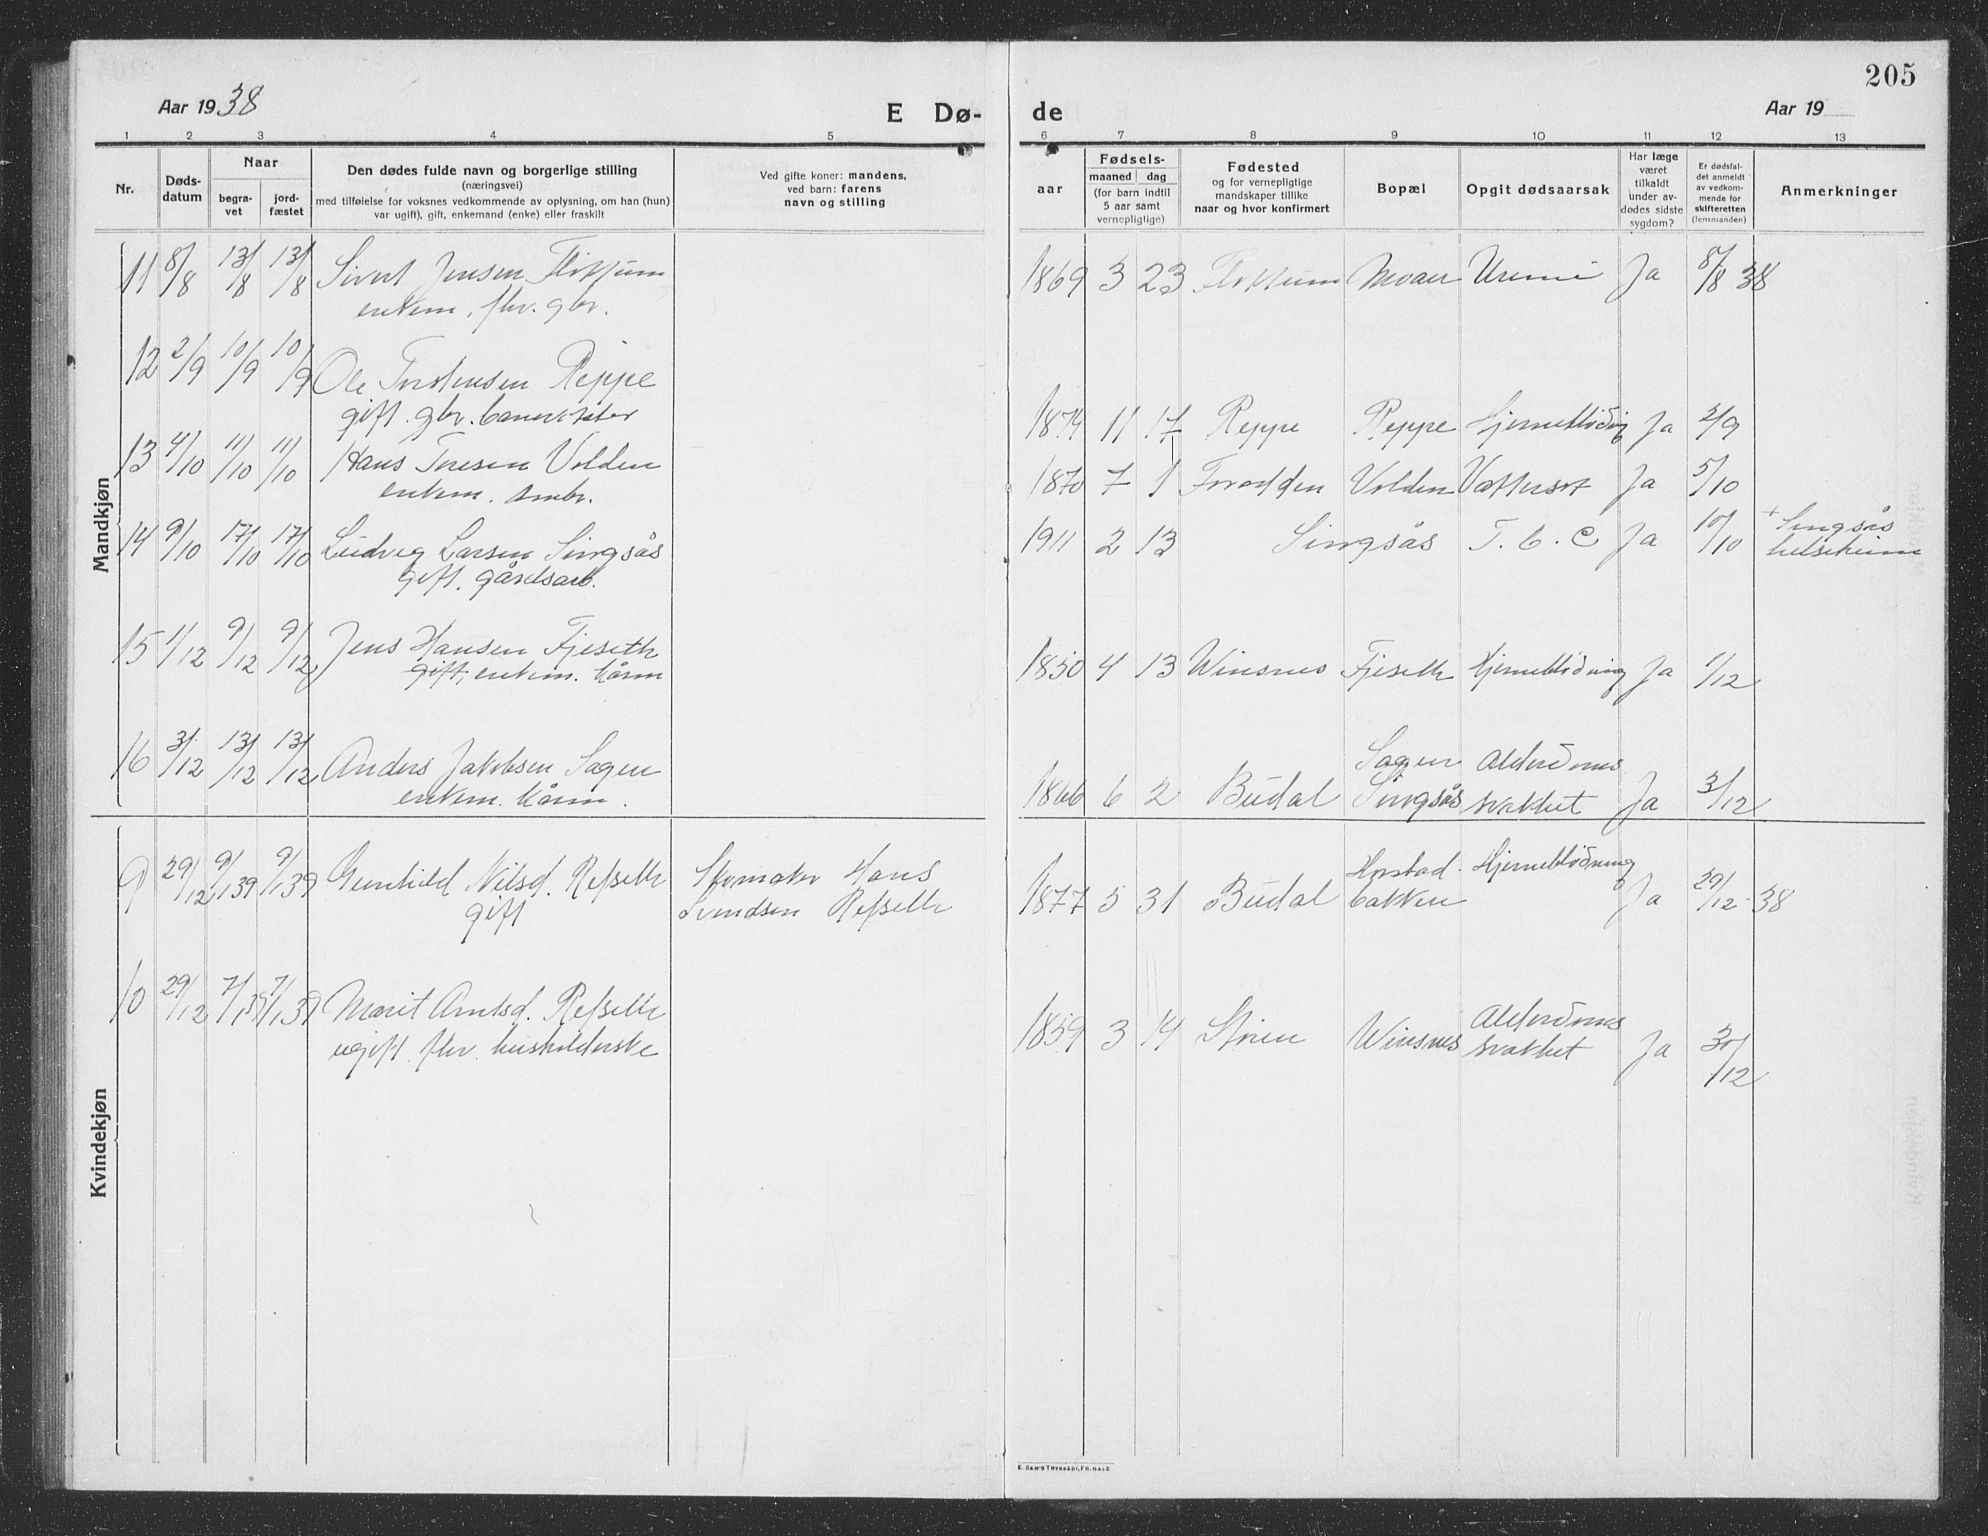 205
Aar 1938
E Dø-
de
Aar 19
1 2 3 4 5 6 7 8 9 10 11 12 13
Nr.
Døds-
datum
Naar
begra-
vet
jord-
fæstet
Den dødes fulde navn og borgerlige stilling
(næringsvei)
med tilføielse for voksnes vedkommende av oplysning, om han (hun)
var ugift), gift, enkemand (enke) eller fraskilt
Ved gifte koner: mandens,
ved barn: farens
navn og stilling
aar
Fødsels-
maaned dag
(for barn indtil
5 aar samt
vernepligtige)
Fødested
og for vernepligtige
mandskaper tillike
naar og hvor konfirmert
Bopæl
Opgit dødsaarsak
Har læge
været
tilkaldt
under av-
dødes sidste
sygdom?
Er dødsfal-
det anmeldt
av vedkom-
mende for
skifteretten
(lensmanden)
Anmerkninger
Mandkjøn
11 8/8 13/8 13/8 Sivert Jensen Flottum 1869 3 23 Flottum Moaer Uremi Ja 8/8 38
enkem. fhv. gbr.
12 2/9 10/9 10/9 Ole Torstensen Reppe
gift. gbr. banevokter 1874 11 17 Reppe Reppe Hjerneblödnig Ja 2/9
13 4/10 11/10 11/10 Hans Toresen Volden 1870 7 1 Forodden Volden Vattersot Ja 5/10
enkem. smbr.
14 9/10 17/10 17/10 Ludvig Larsen Singsås 1911 2 13 Singsås T.b.c Ja 10/10 + Singsås
gift. gårdsarb. helseheim
15 1/12 9/12 9/12 Jens Hansen Fjeseth
gift, enkem. kårm 1850 4 13 Winsnes Fjeseth Hjerneblödning Ja 1/12
16 3/12 13/12 13/12 Anders Jakobsen Sagen Sagen Alderdoms
enkem. kårm. 1866 6 2 Budal Singsås svakhet Ja 3/12
Kvindekjøn
9 29/12 9/1 39 9/1 39 Gunhild Nilsd. Refseth Skomaker Hans Horstad. Hjerneblödning
gift Svendsen Refseth 1877 5 31 Budal bakken Ja 29/12-38
10 29/12 7/1 39 7/1 39 Marit Arntsd. Refseth Alderdoms
ugift. fhv. husholderske 1859 3 14 Stören Winsnes svakhet Ja 30/12
E. SEM'S TRYKKERI, FR.HALD